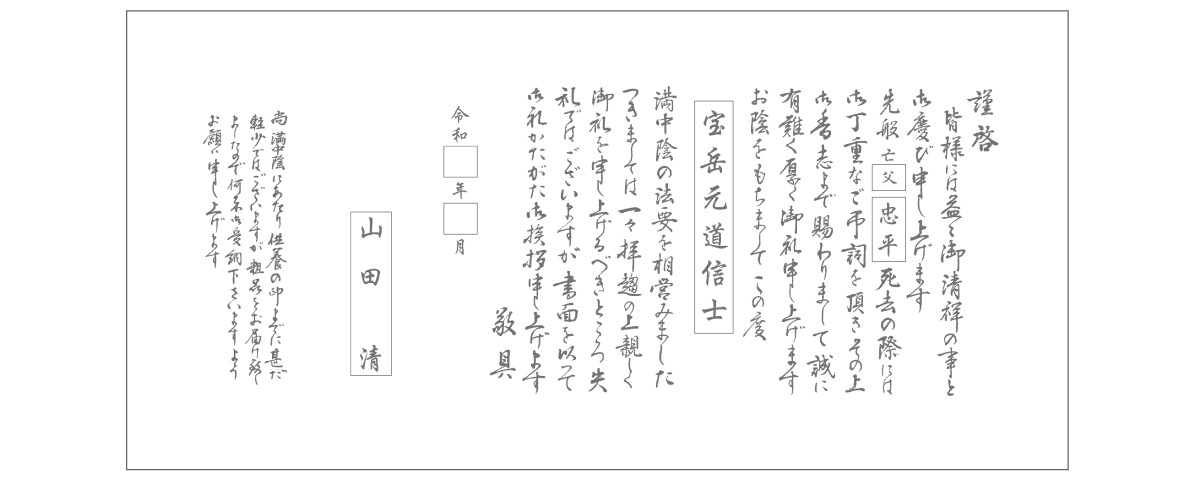 謹啓
皆様には益々御清祥の事と
御慶び申し上げます
先般 亡 父 忠平 死去の際には
御丁重なご弔詞を頂きその上
御香志まで賜わりまして誠に
有難く厚く御礼申し上げます
お陰をもちまして この度
宝岳元道信士
満中陰の法要を相営みました
つきましては 一々拝趨の上親しく
御礼を申し上げるべきところ 失
礼ではございますが書面を以って
御礼かたがた御挨拶申し上げます
敬具
令和 年 月
山田 清
尚 満中陰にあたり供養の印までに甚だ
軽少ではございますが 粗品をお届け致し
ましたので何卒御受納下さいますよう
お願い申し上げます